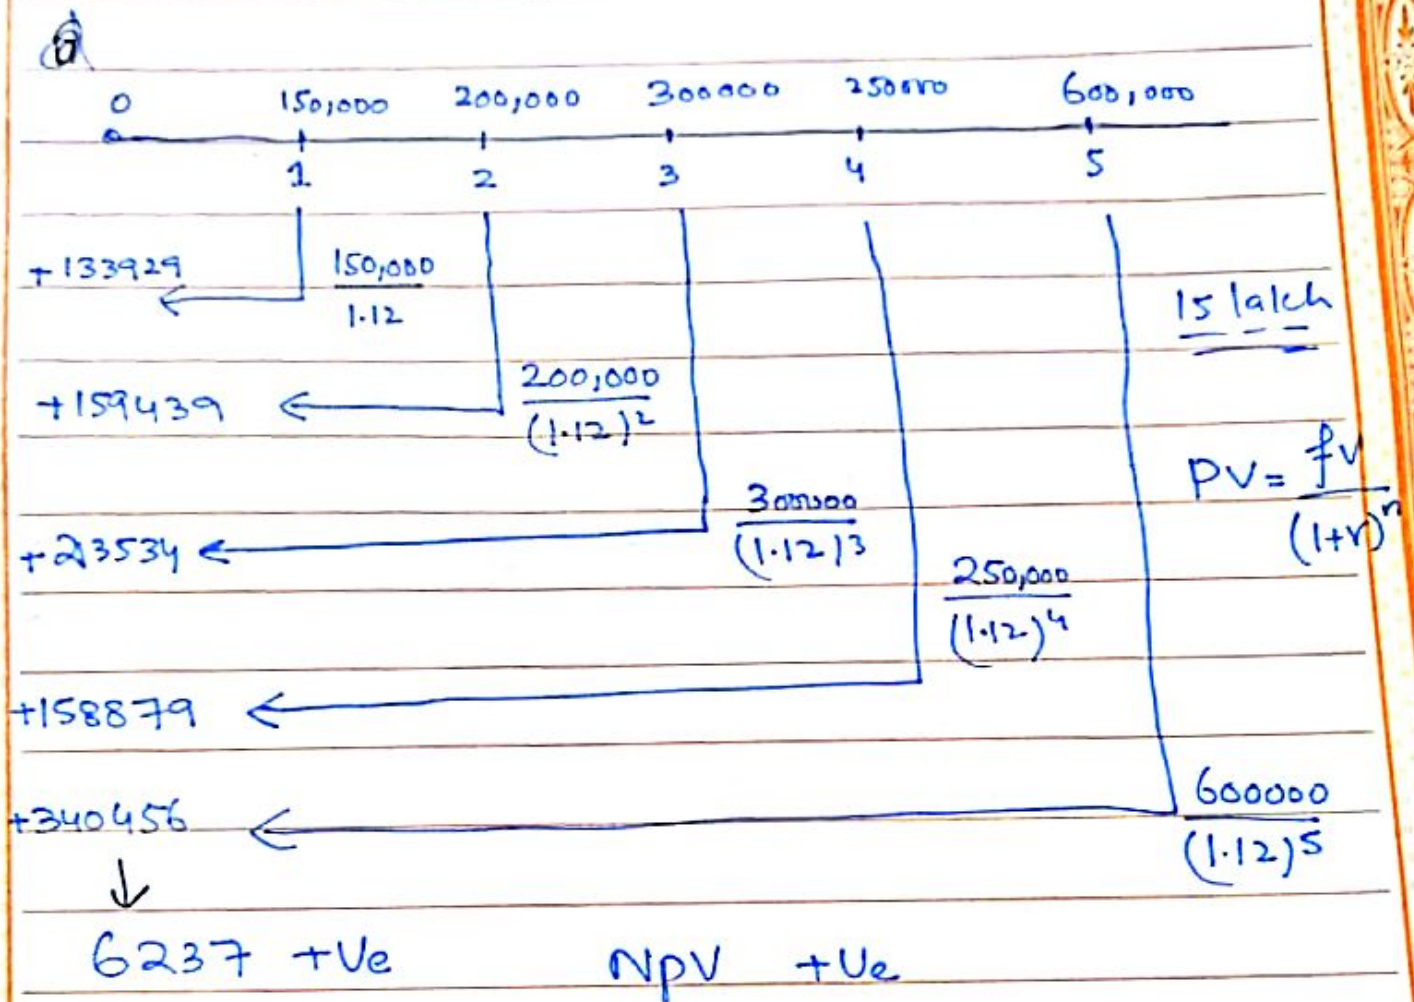 0 150,000 200,000 300000 250000 600,000
1 2 3 4 5
+133929 150,000
1.12
15 lakh
+159439 200,000
(1.12)2
PV= fv
(1+r)n
+213534 300000
(1.12)3
250,000
(1.12)4
+158879
+340456 600000
(1.12)5
6237 +Ve NPV +Ve